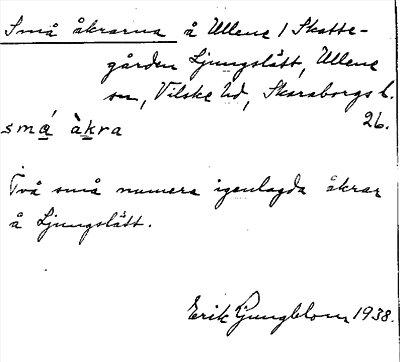 Små åkrarna å Ullene 1 Skatte-
gården Ljungslätt, Ullene
sn, Vilske hd, Skaraborgs l.
26.
små àkra
Två små numera igenlagda åkrar
å Ljungslätt.
Erik Ljungblom 1938.